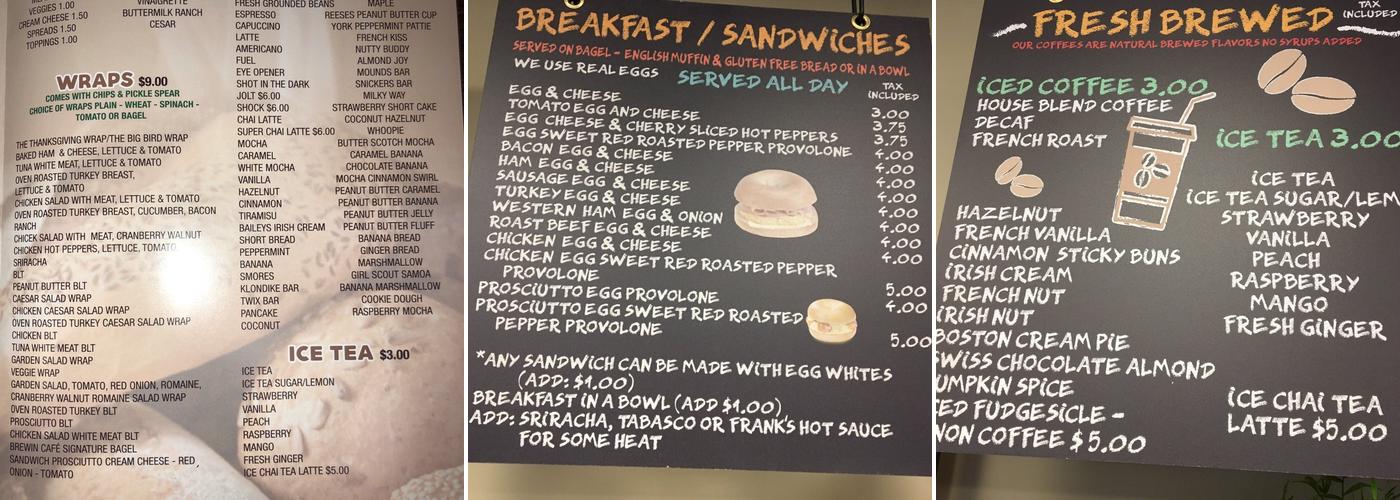 VEGGIES 1.00
CREAM CHEESE 1.50
SPREADS 1.50
TOPPINGS 1.00
VINAIGRETTE
BUTTERMILK RANCH
CESAR
WRAPS $9.00
COMES WITH CHIPS & PICKLE SPEAR
CHOICE OF WRAPS PLAIN - WHEAT - SPINACH -
TOMATO OR BAGEL
THE THANKSGIVING WRAP/THE BIG BIRD WRAP
BAKED HAM & CHEESE, LETTUCE & TOMATO
TUNA WHITE MEAT, LETTUCE & TOMATO
OVEN ROASTED TURKEY BREAST,
LETTUCE & TOMATO
CHICKEN SALAD WITH MEAT, LETTUCE & TOMATO
OVEN ROASTED TURKEY BREAST, CUCUMBER, BACON
RANCH
CHICEK SALAD WITH MEAT, CRANBERRY WALNUT
CHICKEN HOT PEPPERS, LETTUCE, TOMATO,
SRIRACHA
BLT
PEANUT BUTTER BLT
CAESAR SALAD WRAP
CHICKEN CAESAR SALAD WRAP
OVEN ROASTED TURKEY CAESAR SALAD WRAP
CHICKEN BLT
TUNA WHITE MEAT BLT
GARDEN SALAD WRAP
VEGGIE WRAP
GARDEN SALAD, TOMATO, RED ONION, ROMAINE,
CRANBERRY WALNUT ROMAINE SALAD WRAP
OVEN ROASTED TURKEY BLT
PROSCIUTTO BLT
CHICKEN SALAD WHITE MEAT BLT
BREWIN CAFÉ SIGNATURE BAGEL
SANDWICH PROSCIUTTO CREAM CHEESE - RED
ONION - TOMATO
FRESH GROUNDED BEANS
ESPRESSO
CAPUCCINO
LATTE
AMERICANO
FUEL
EYE OPENER
SHOT IN THE DARK
JOLT $6.00
SHOCK $6.00
CHAI LATTE
SUPER CHAI LATTE $6.00
MOCHA
CARAMEL
WHITE MOCHA
VANILLA
HAZELNUT
CINNAMON
TIRAMISU
BAILEYS IRISH CREAM
SHORT BREAD
PEPPERMINT
BANANA
SMORES
KLONDIKE BAR
TWIX BAR
PANCAKE
COCONUT
MAPLE
REESES PEANUT BUTTER CUP
YORK PEPPERMINT PATTIE
FRENCH KISS
NUTTY BUDDY
ALMOND JOY
MOUNDS BAR
SNICKERS BAR
MILKY WAY
STRAWBERRY SHORT CAKE
COCONUT HAZELNUT
WHOOPIE
BUTTER SCOTCH MOCHA
CARAMEL BANANA
CHOCOLATE BANANA
MOCHA CINNAMON SWIRL
PEANUT BUTTER CARAMEL
PEANUT BUTTER BANANA
PEANUT BUTTER JELLY
PEANUT BUTTER FLUFF
BANANA BREAD
GINGER BREAD
MARSHMALLOW
GIRL SCOUT SAMOA
BANANA MARSHMALLOW
COOKIE DOUGH
RASPBERRY MOCHA
ICE TEA $3.00
ICE TEA
ICE TEA SUGAR/LEMON
STRAWBERRY
VANILLA
PEACH
RASPBERRY
MANGO
FRESH GINGER
ICE CHAI TEA LATTE $5.00
BREAKFAST / SANDWICHES
SERVED ON BAGEL - ENGLISH MUFFIN & GLUTEN FREE BREAD OR IN A BOWL
WE USE REAL EGGS
SERVED ALL DAY
TAX
INCLUDED
EGG & CHEESE 3.00
TOMATO EGG AND CHEESE 3.75
EGG CHEESE & CHERRY SLICED HOT PEPPERS 3.75
EGG SWEET RED ROASTED PEPPER PROVOLONE 4.00
BACON EGG & CHEESE 4.00
HAM EGG & CHEESE 4.00
SAUSAGE EGG & CHEESE 4.00
TURKEY EGG & CHEESE 4.00
WESTERN HAM EGG & ONION 4.00
ROAST BEEF EGG & CHEESE 4.00
CHICKEN EGG & CHEESE 4.00
CHICKEN EGG SWEET RED ROASTED PEPPER
PROVOLONE 5.00
PROSCIUTTO EGG PROVOLONE 4.00
PROSCIUTTO EGG SWEET RED ROASTED
PEPPER PROVOLONE 5.00
*ANY SANDWICH CAN BE MADE WITH EGG WHITES
(ADD: $1.00)
BREAKFAST IN A BOWL (ADD $1.00)
ADD: SRIRACHA, TABASCO OR FRANK'S HOT SAUCE
FOR SOME HEAT
FRESH BREWED
TAX
INCLUDED
OUR COFFEES ARE NATURAL BREWED FLAVORS NO SYRUPS ADDED
ICED COFFEE 3.00
HOUSE BLEND COFFEE
DECAF
FRENCH ROAST
HAZELNUT
FRENCH VANILLA
CINNAMON STICKY BUNS
IRISH CREAM
FRENCH NUT
IRISH NUT
BOSTON CREAM PIE
SWISS CHOCOLATE ALMOND
UMPKIN SPICE
ED FUDGESICLE -
NON COFFEE $5.00
ICE TEA 3.00
ICE TEA
ICE TEA SUGAR/LEM
STRAWBERRY
VANILLA
PEACH
RASPBERRY
MANGO
FRESH GINGER
ICE CHAI TEA
LATTE $5.00